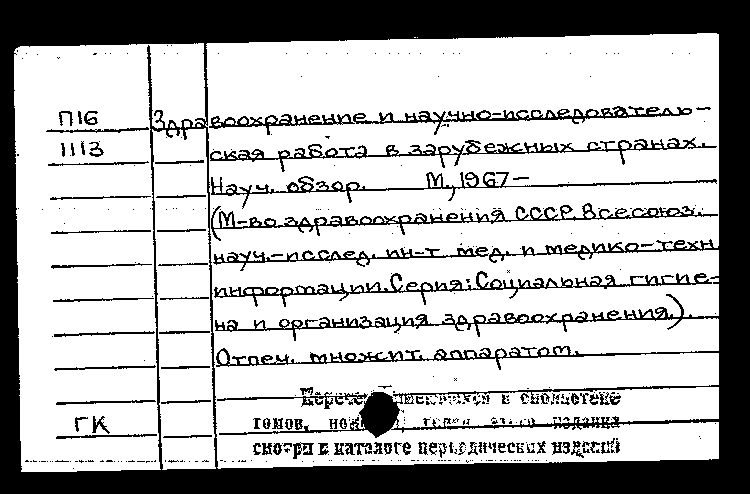 П16 Здравоохранение и научно-исследователь-
1113 ская работа в зарубежных странах.
Науч. обзор. М., 1967-
(М-во здравоохранения СССР. Всесоюз.
науч.-исслед. ин-т мед. и медико-техн.
информации. Серия: Социальная гигие-
на и организация здравоохранения.).
Отпеч. множит. аппаратом.
имеющихся в библиотеке
ГК томов, этого издания
смотри в каталоге периодических изданий